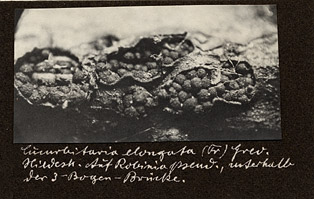 Cucurbitaria elongata (Fr.) Grev.
Hildesh. Auf Robinia pseud., unterhalb
der 3-Bogen-Brücke.